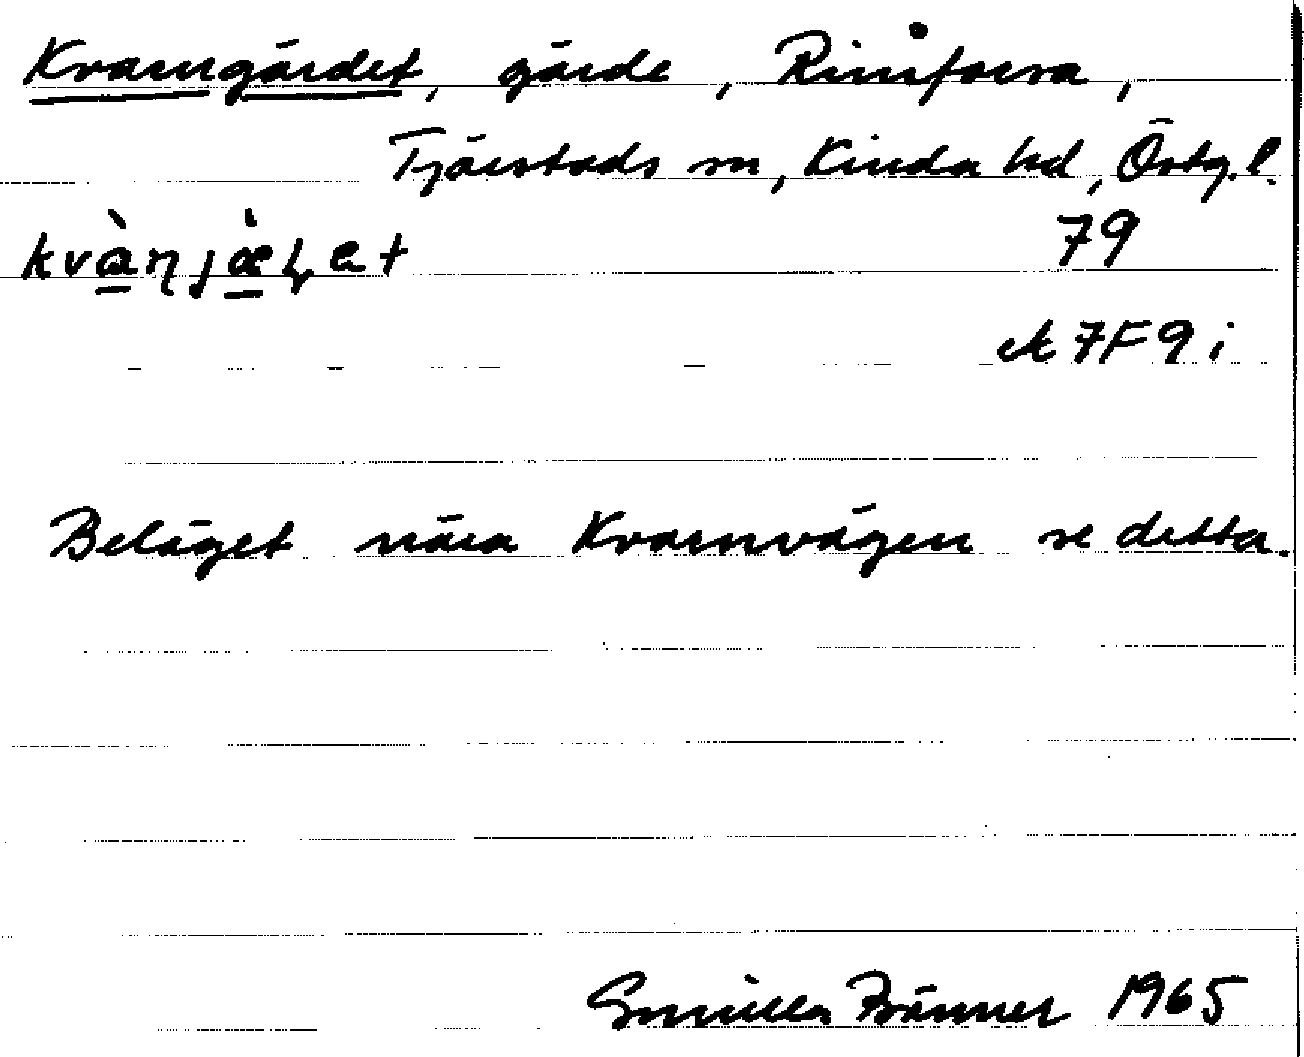 Kvarngärdet, gärde, Rimforsa,
Tjärstads sn, Kinda hd, Östg. l.
79
A 7F9i
Beläget nära Kvarnvägen se detta.
Gunilla Fränner 1965